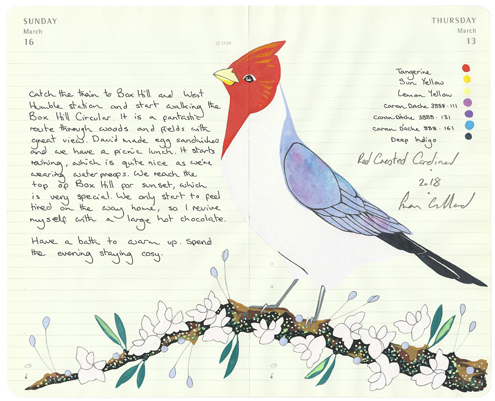 SUNDAY
March
16
Catch the train to Box Hill and West
Humble station and start walking the
Box Hill Circular. It is a fantastic
route through woods and fields with
great view. David made egg sandwiches
and we have a picnic lunch. It starts
raining, which is quite nice as we're
wearing waterproofs. We reach the
top of Box Hill for sunset, which
is very special. We only start to feel
tired on the way home, so I revive
myself with a large hot chocolate.
Have a bath to warm up. Spend
the evening staying cosy.
THURSDAY
March
13
Tangerine
Sun Yellow
Lemon Yellow
Caran Dache 3888.111
Caran Dache 3888.131
Caran Dache 888.161
Deep Indigo
Red Crested Cardinal
2018